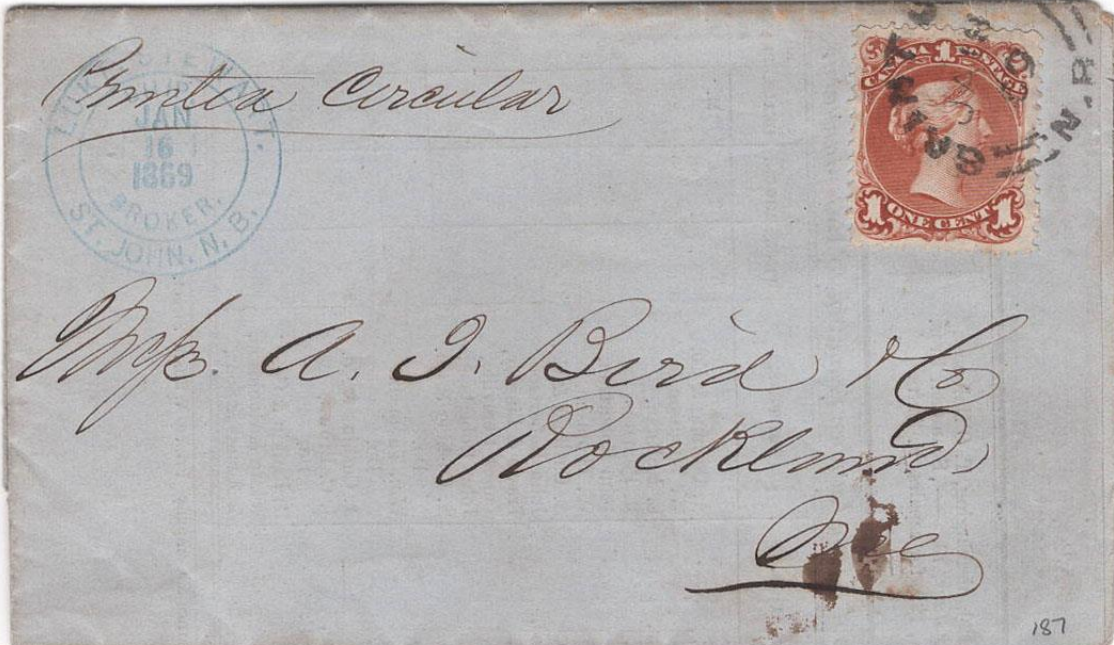 Printed Circular
LUKE STEWART.
JAN
16
1869
BROKER,
ST. JOHN, N. B.
CANADA 1 POSTAGE
1 ONE CENT 1
SAINT
N.B
Mess. A. J. Bird & Co
Rockland,
Me
187